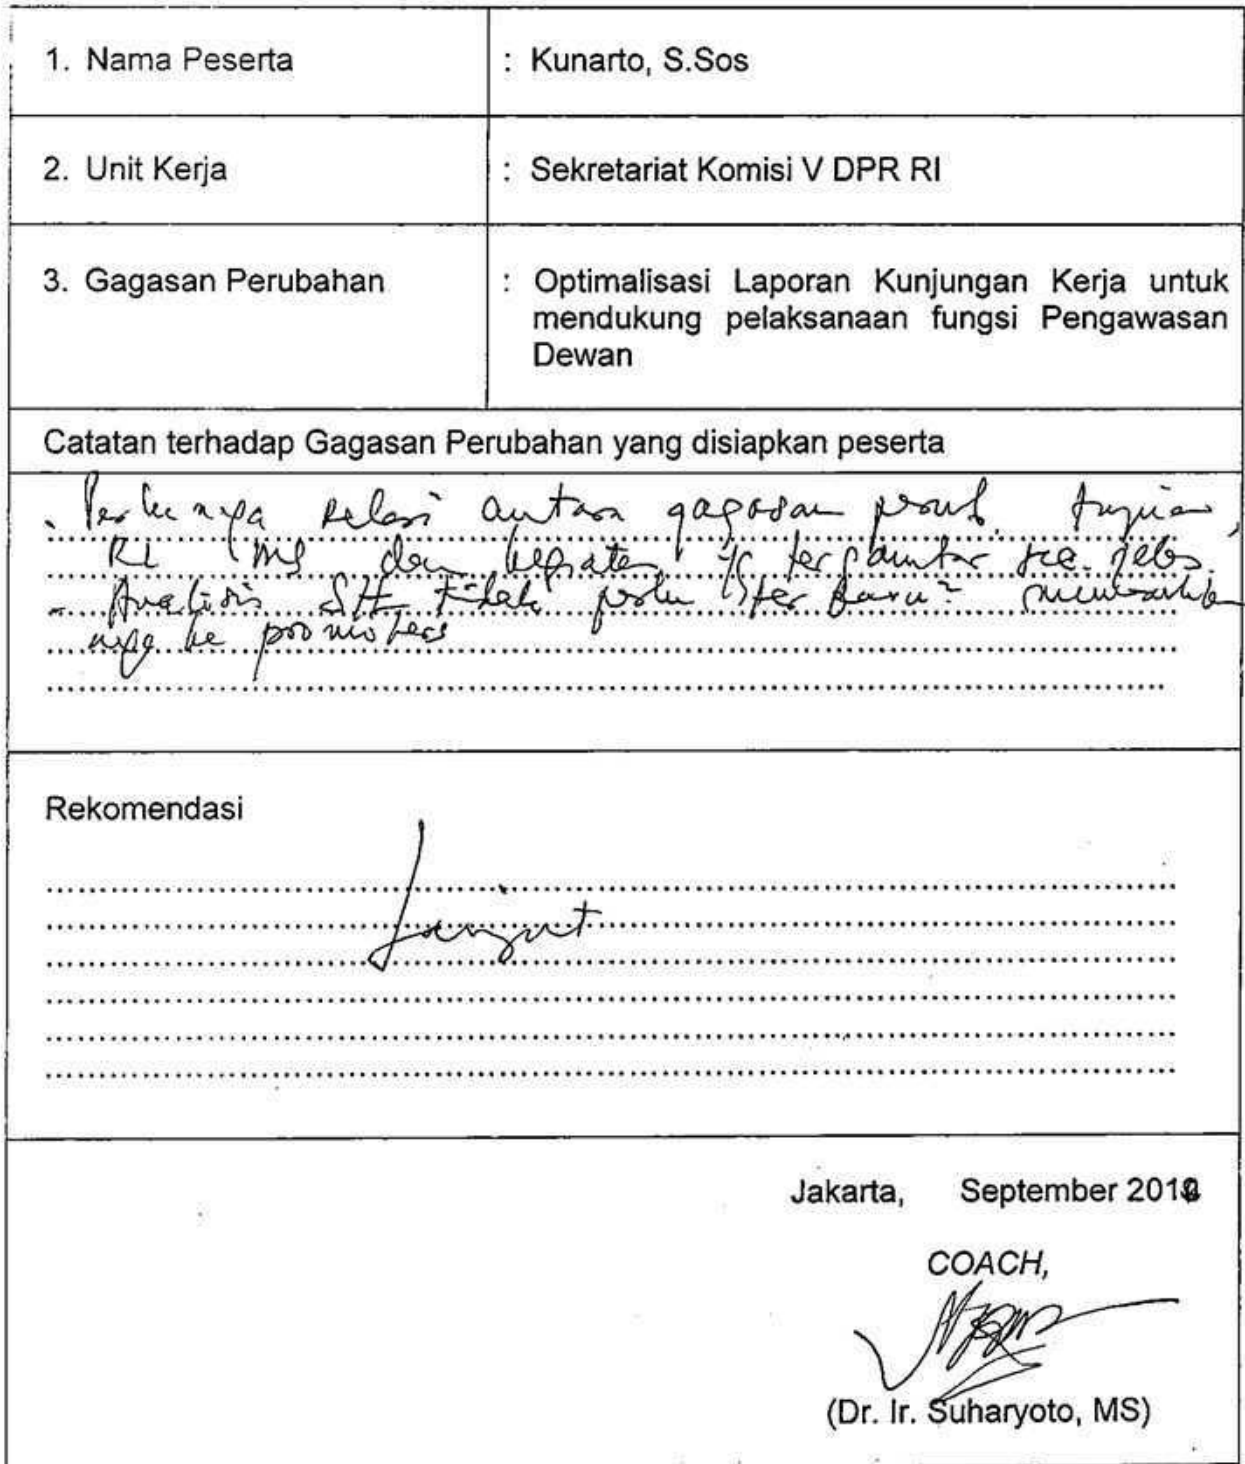 1. Nama Peserta : Kunarto, S.Sos
2. Unit Kerja : Sekretariat Komisi V DPR RI
3. Gagasan Perubahan : Optimalisasi Laporan Kunjungan Kerja untuk
mendukung pelaksanaan fungsi Pengawasan
Dewan
Catatan terhadap Gagasan Perubahan yang disiapkan peserta
- Perlunya relasi antara gagasan perub. tujuan,
dan tergambar
- Analisis SH tidak perlu
nya ke promoters
Rekomendasi
Lanjut
Jakarta, September 201
COACH,
(Dr. Ir. Suharyoto, MS)